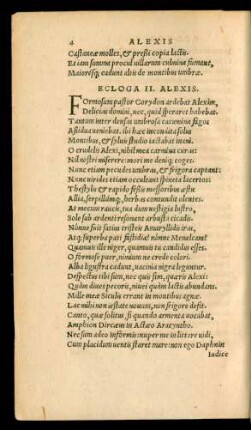 4 ALEXIS
Castaneæ molles, & pressi copia lactis.
Et iam summa procul uillarum culmina fumant,
Maioresq; cadunt altis de montibus umbræ.
ECLOGA II. ALEXIS.
FOrmosum pastor Corydon ardebat Alexim,
Delicias domini, nec, quid speraret habebat.
Tantum inter densas umbrosa cacumina fagos
Assidue ueniebat. ibi hæc incondita solus
Montibus, & syluis studio iactabat inani.
O crudelis Alexi, nihil mea carmina curas?
Nil nostri miserere: mori me deniq; coges.
Nunc etiam pecudes umbras, & frigora captant:
Nunc uirides etiam occultant spineta lacertos:
Thestylis & rapido fessis messoribus æstu
Allia, serpillumq; herbas contundit olentes.
At mecum raucis, tua dum uestigia lustro,
Sole sub ardenti resonant arbusta cicadis.
Nonne fuit satius tristeis Amaryllidis iras,
Atq; superba pati fastidia? nonne Menalcam?
Quamuis ille niger, quamuis tu candidus esses.
O formose puer, nimium ne crede colori.
Alba ligustra cadunt, uaccinia nigra leguntur.
Despectus tibi sum, nec quis sim, quæris Alexi:
Quàm diues pecoris, niuei quàm lactis abundans.
Mille meæ Siculis errant in montibus agnæ.
Lac mihi non æstate nouum, non frigore defit.
Canto, quæ solitus, si quando armenta uocabat,
Amphion Dircæus in Actæo Aracyntho.
Nec sum adeo informis: nuper me in littore uidi,
Cum placidum uentis staret mare: non ego Daphnin
Iudice